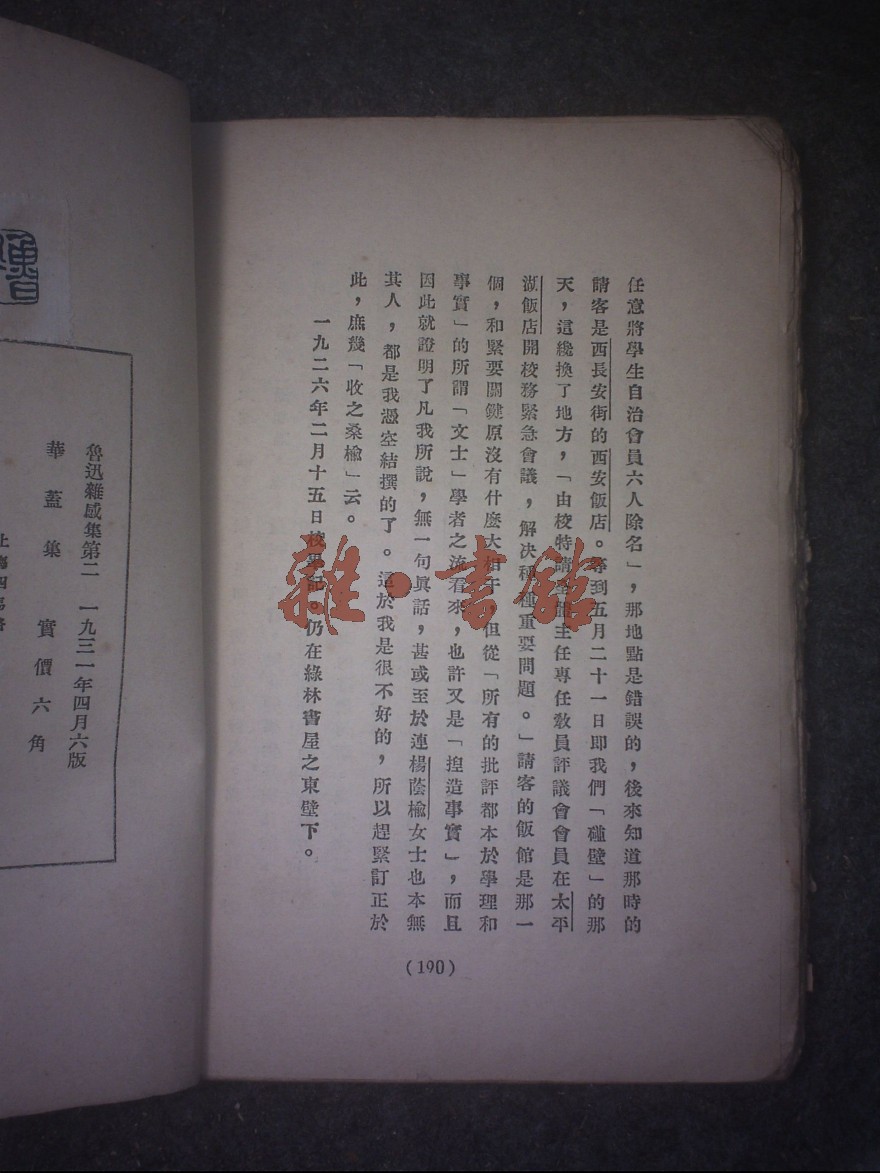 任意將學生自治會員六人除名」，那地點是錯誤的，後來知道那時的
請客是西長安街的西安飯店。等到五月二十一日卽我們「碰壁」的那
天，這纔換了地方，「由校特請全體主任專任敎員評議會會員在太平
湖飯店開校務緊急會議，解決種種重要問題。」請客的飯館是那一
個，和緊要關鍵原沒有什麽大相干，但從「所有的批評都本於學理和
事實」的所謂「文士」學者之流看來，也許又是「揑造事實」，而且
因此就證明了凡我所說，無一句眞話，甚或至於連楊蔭榆女士也本無
其人，都是我憑空結撰的了。這於我是很不好的，所以趕緊訂正於
此，庶幾「收之桑榆」云。
一九二六年二月十五日校畢記。仍在綠林書屋之東壁下。
(190)
雜·書館
魯迅雜感集第二　一九三一年四月六版
華蓋集　實價六角
上海四馬路